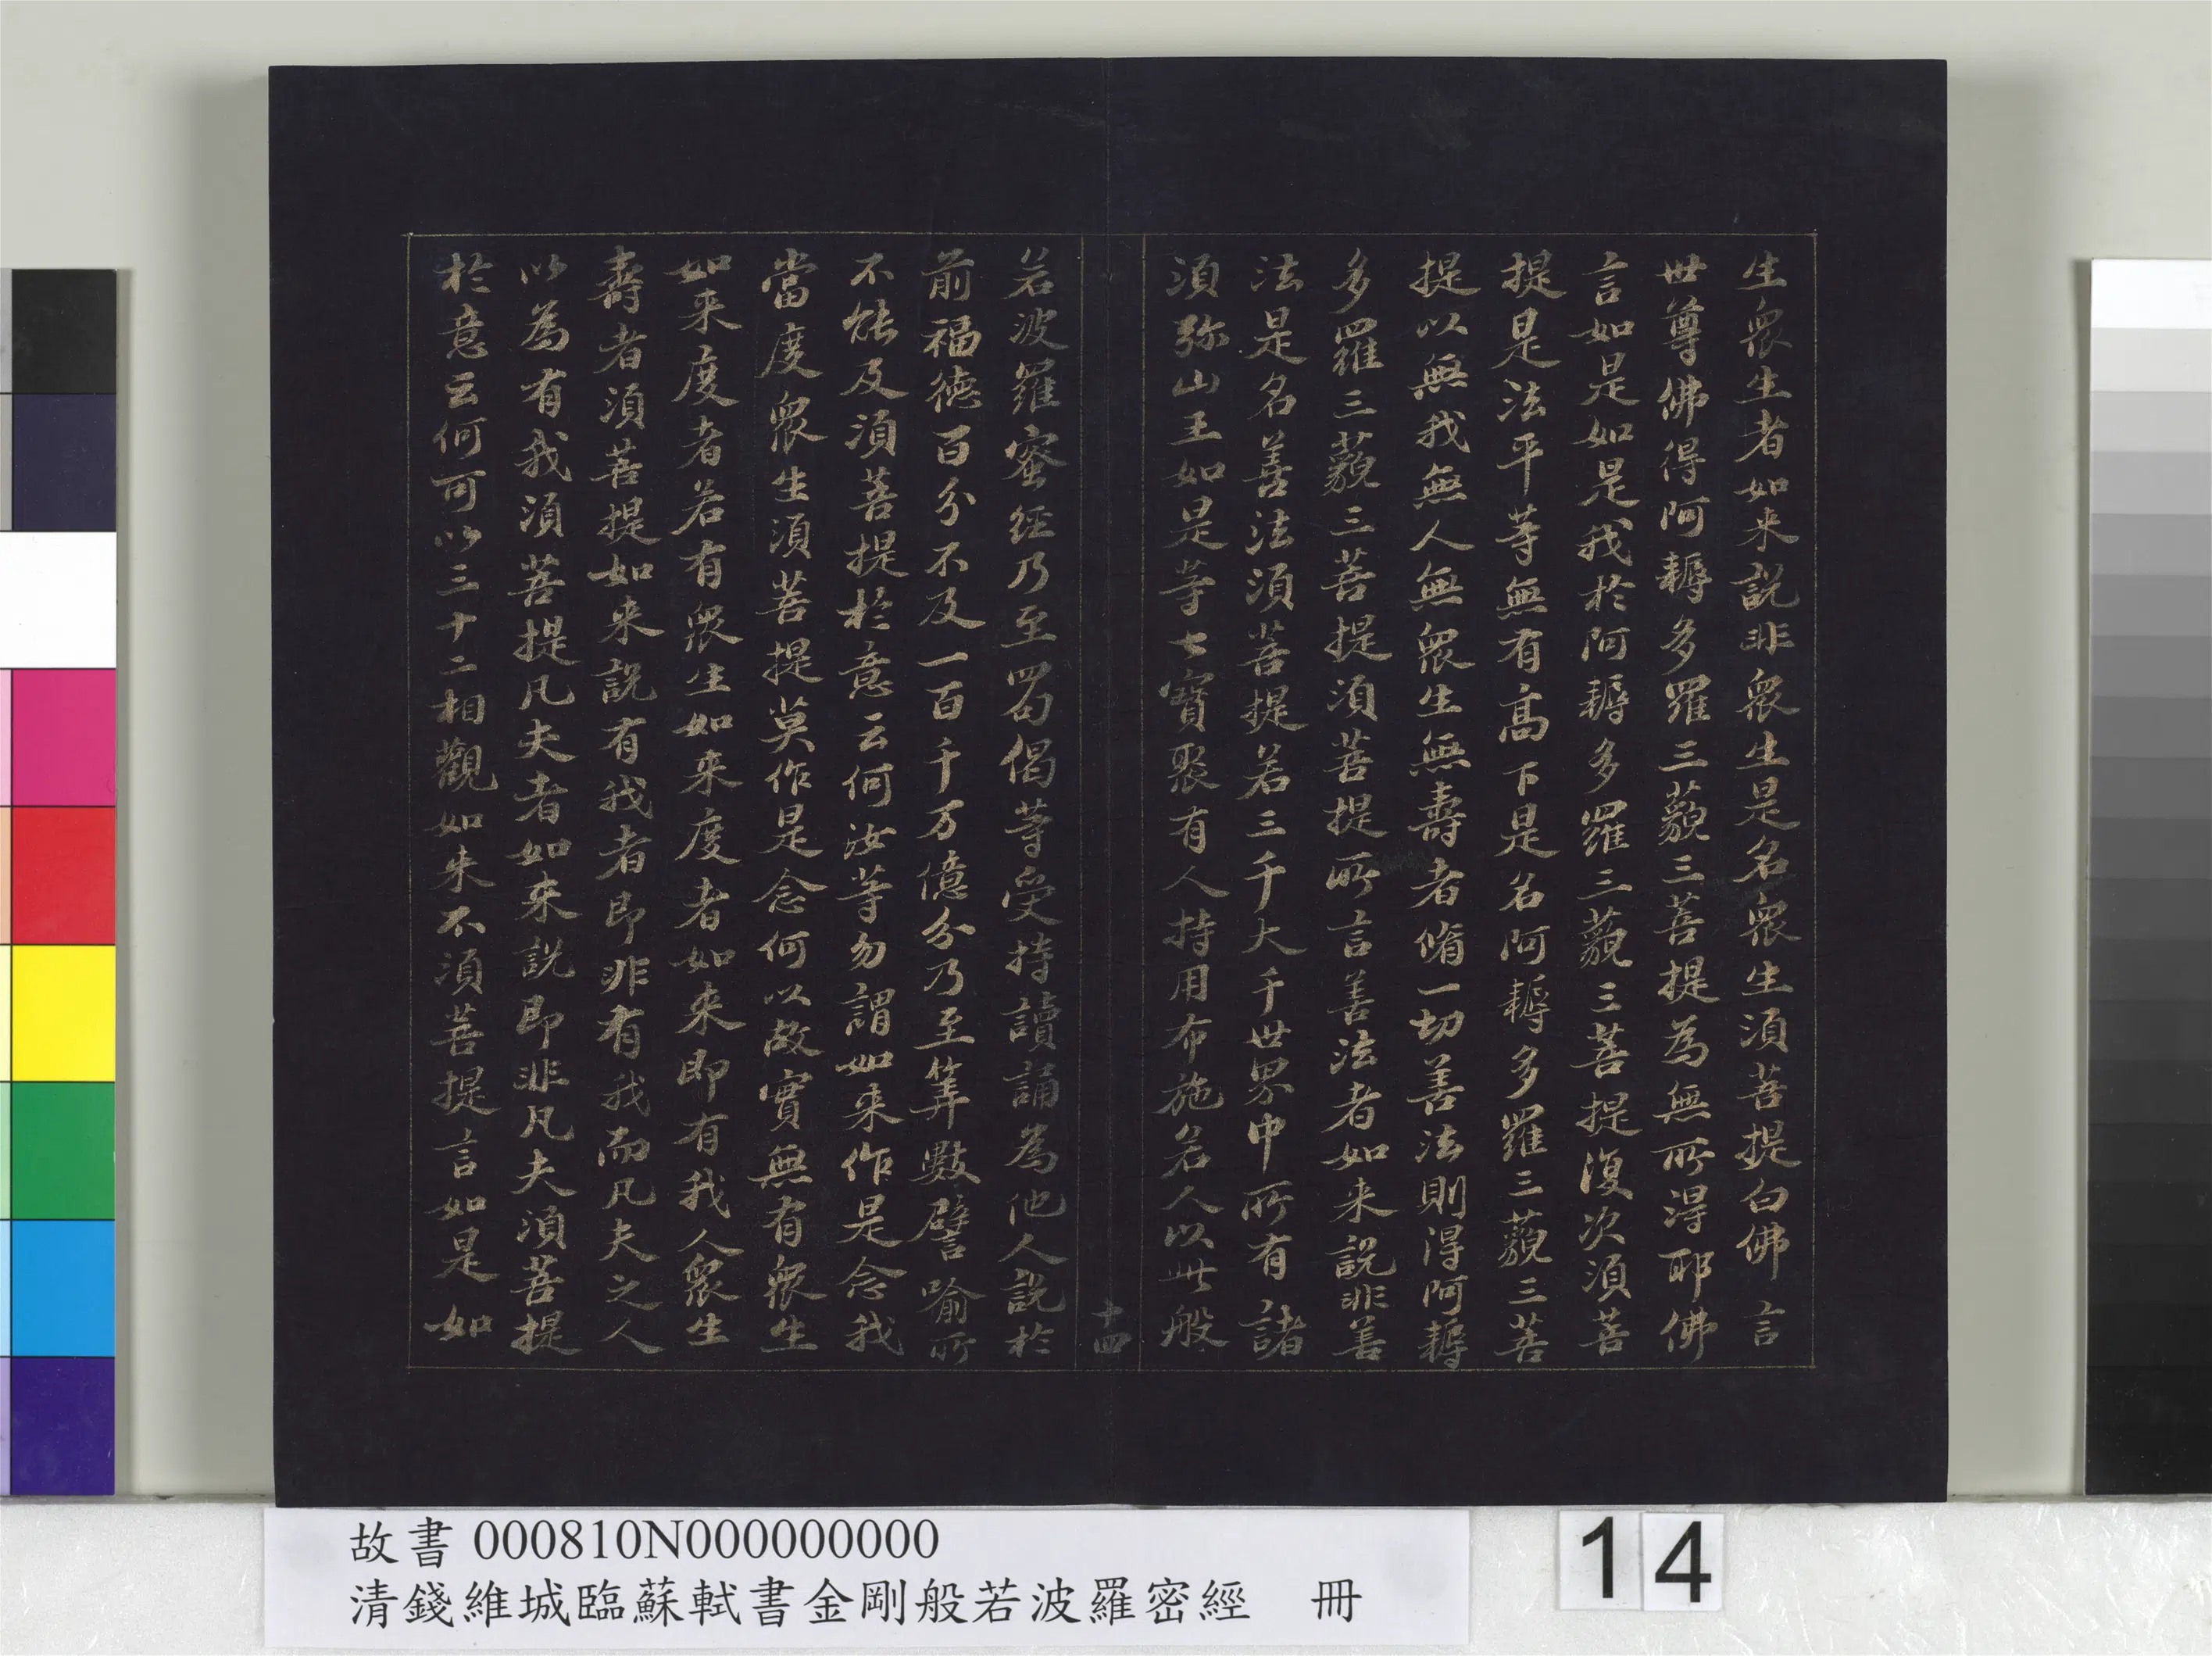 生衆生者如来説非衆生是名衆生湏菩提白佛言
世尊佛得阿耨多羅三藐三菩提為無所淂耶佛
言如是如是我於阿耨多羅三藐三菩提復次湏菩
提是法平等無有髙下是名阿耨多羅三藐三菩
提以無我無人無衆生無壽者脩一切善法則淂阿耨
多羅三藐三菩提湏菩提所言善法者如来説非善
法是名善法湏菩提若三千大千世界中所有諸
湏弥山王如是等七寳聚有人持用布施若人以此般
十四
若波羅蜜経乃至四句偈等受持讀誦為他人説於
前福徳百分不及一百千万億分乃至筭數譬喻所
不能及湏菩提於意云何汝等勿謂如来作是念我
當度衆生湏菩提莫作是念何以故實無有衆生
如来度者若有衆生如来度者如来即有我人衆生
壽者湏菩提如来説有我者即非有我而凡夫之人
以為有我湏菩提凡夫者如来説即非凡夫湏菩提
於意云何可以三十二相觀如来不湏菩提言如是如
故書 000810N000000000
清錢維城臨蘇軾書金剛般若波羅密經 冊
14